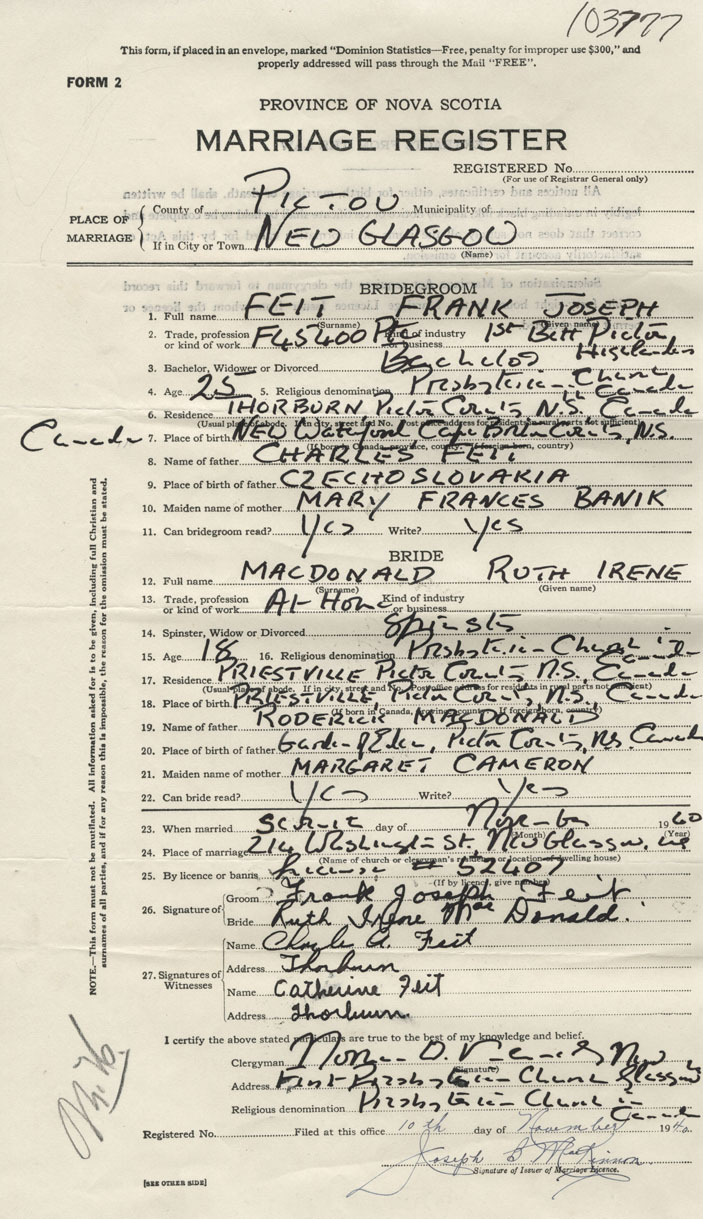 103777
This form, if placed in an envelope, marked "Dominion Statistics—Free, penalty for improper use $300," and
properly addressed will pass through the Mail "FREE".
FORM 2
PROVINCE OF NOVA SCOTIA
MARRIAGE REGISTER
REGISTERED No.
(For use of Registrar General only)
PLACE OF MARRIAGE
County of PICTOU Municipality of
If in City or Town NEW GLASGOW
(Name)
BRIDEGROOM
1. Full name FEIT FRANK JOSEPH
(Surname) (Given name)
2. Trade, profession or kind of work F45400 Pte Kind of industry or business 1st Batt Pictou Highlanders
3. Bachelor, Widower or Divorced Bachelor
4. Age 25 5. Religious denomination Presbyterian Church in Canada
6. Residence THORBURN, Pictou County, N.S. Canada
(Usual place of abode. If in city, street and No. Post office address for residents in rural parts not sufficient)
7. Place of birth NEW Waterford, Cape Breton County, N.S. Canada
(If born in Canada, province, county. If foreign born, country)
8. Name of father CHARLES FEIT
9. Place of birth of father CZECHOSLOVAKIA
10. Maiden name of mother MARY FRANCES BANIK
11. Can bridegroom read? Yes Write? Yes
BRIDE
12. Full name MACDONALD RUTH IRENE
(Surname) (Given name)
13. Trade, profession or kind of work At Home Kind of industry or business
14. Spinster, Widow or Divorced Spinster
15. Age 18 16. Religious denomination Presbyterian Church in Canada
17. Residence PRIESTVILLE Pictou County, N.S. Canada
(Usual place of abode. If in city, street and No. Post office address for residents in rural parts not sufficient)
18. Place of birth PRIESTVILLE, Pictou County, N.S. Canada
(If born in Canada, province, county. If foreign born, country)
19. Name of father RODERICK MACDONALD
20. Place of birth of father Garden of Eden, Pictou County, N.S. Canada
21. Maiden name of mother MARGARET CAMERON
22. Can bride read? Yes Write? Yes
23. When married day of November 1940
(Month) (Year)
24. Place of marriage Washington St, New Glasgow, N.S.
(Name of church or clergyman's residence or location of dwelling house)
25. By licence or banns License # 52407
(If by licence, give number)
26. Signature of
Groom Frank Joseph Feit
Bride Ruth Irene MacDonald.
27. Signatures of Witnesses
Name Charle A. Feit
Address Thorburn
Name Catherine Feit
Address Thorburn.
I certify the above stated particulars are true to the best of my knowledge and belief.
Clergyman Norman D.
(Signature)
Address First Presbyterian Church New Glasgow
Religious denomination Presbyterian Church in Canada
Registered No. Filed at this office 10th day of November 1940
Joseph B MacKinnon
Signature of Issuer of Marriage Licence.
[SEE OTHER SIDE]
NOTE.—This form must not be mutilated. All information asked for is to be given, including full Christian and
surnames of all parties, and if for any reason this is impossible, the reason for the omission must be stated.